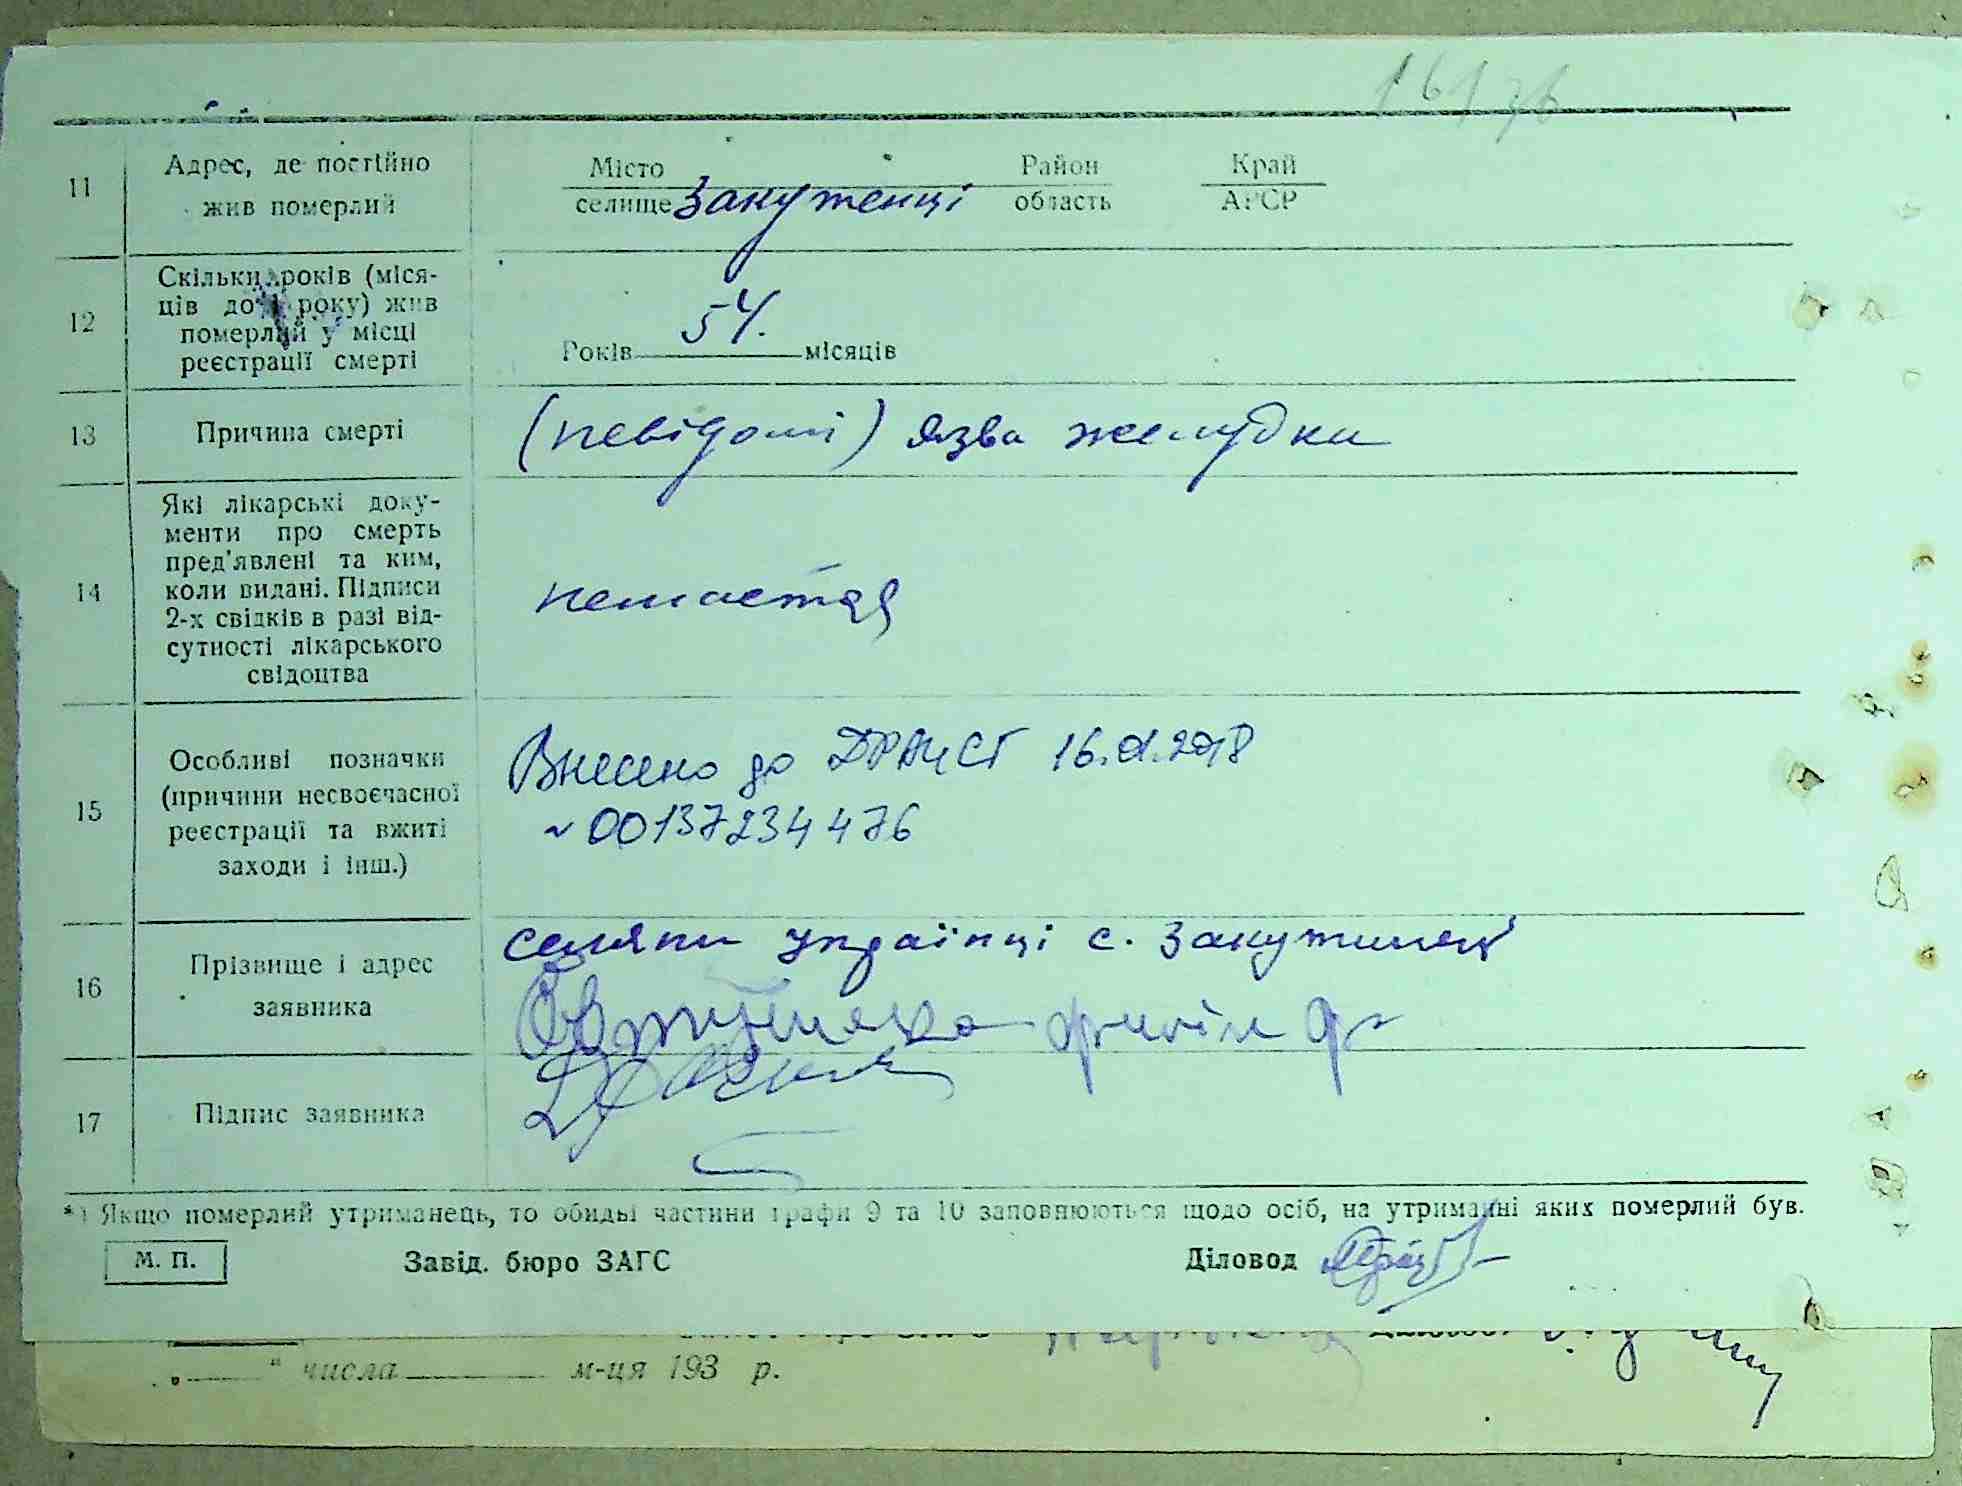 11
Адрес, де постійно
жив померлий
Місто
селище
Закуженці
Район
область
Край
АРСР
12
Скільки років (міся-
ців до 1 року) жив
померлий у місці
реєстрації смерті
54.
Років місяців
13
Причина смерті
(невідомі) язва желудка
14
Які лікарські доку-
менти про смерть
пред'явлені та ким,
коли видані. Підписи
2-х свідків в разі від-
сутності лікарського
свідоцтва
15
Особливі позначки
(причини несвоєчасної
реєстрації та вжиті
заходи і інш.)
Внесено до ДРАЦСГ 16.01.2018
~ 00137234476
16
Прізвище і адрес
заявника
селяни українці с.
17
Підпис заявника
*) Якщо померлий утриманець, то обидві частини графи 9 та 10 заповнюються щодо осіб, на утриманні яких померлий був.
М. П.
Завід. бюро ЗАГС
Діловод
„ “ числа м-ця 193 р.